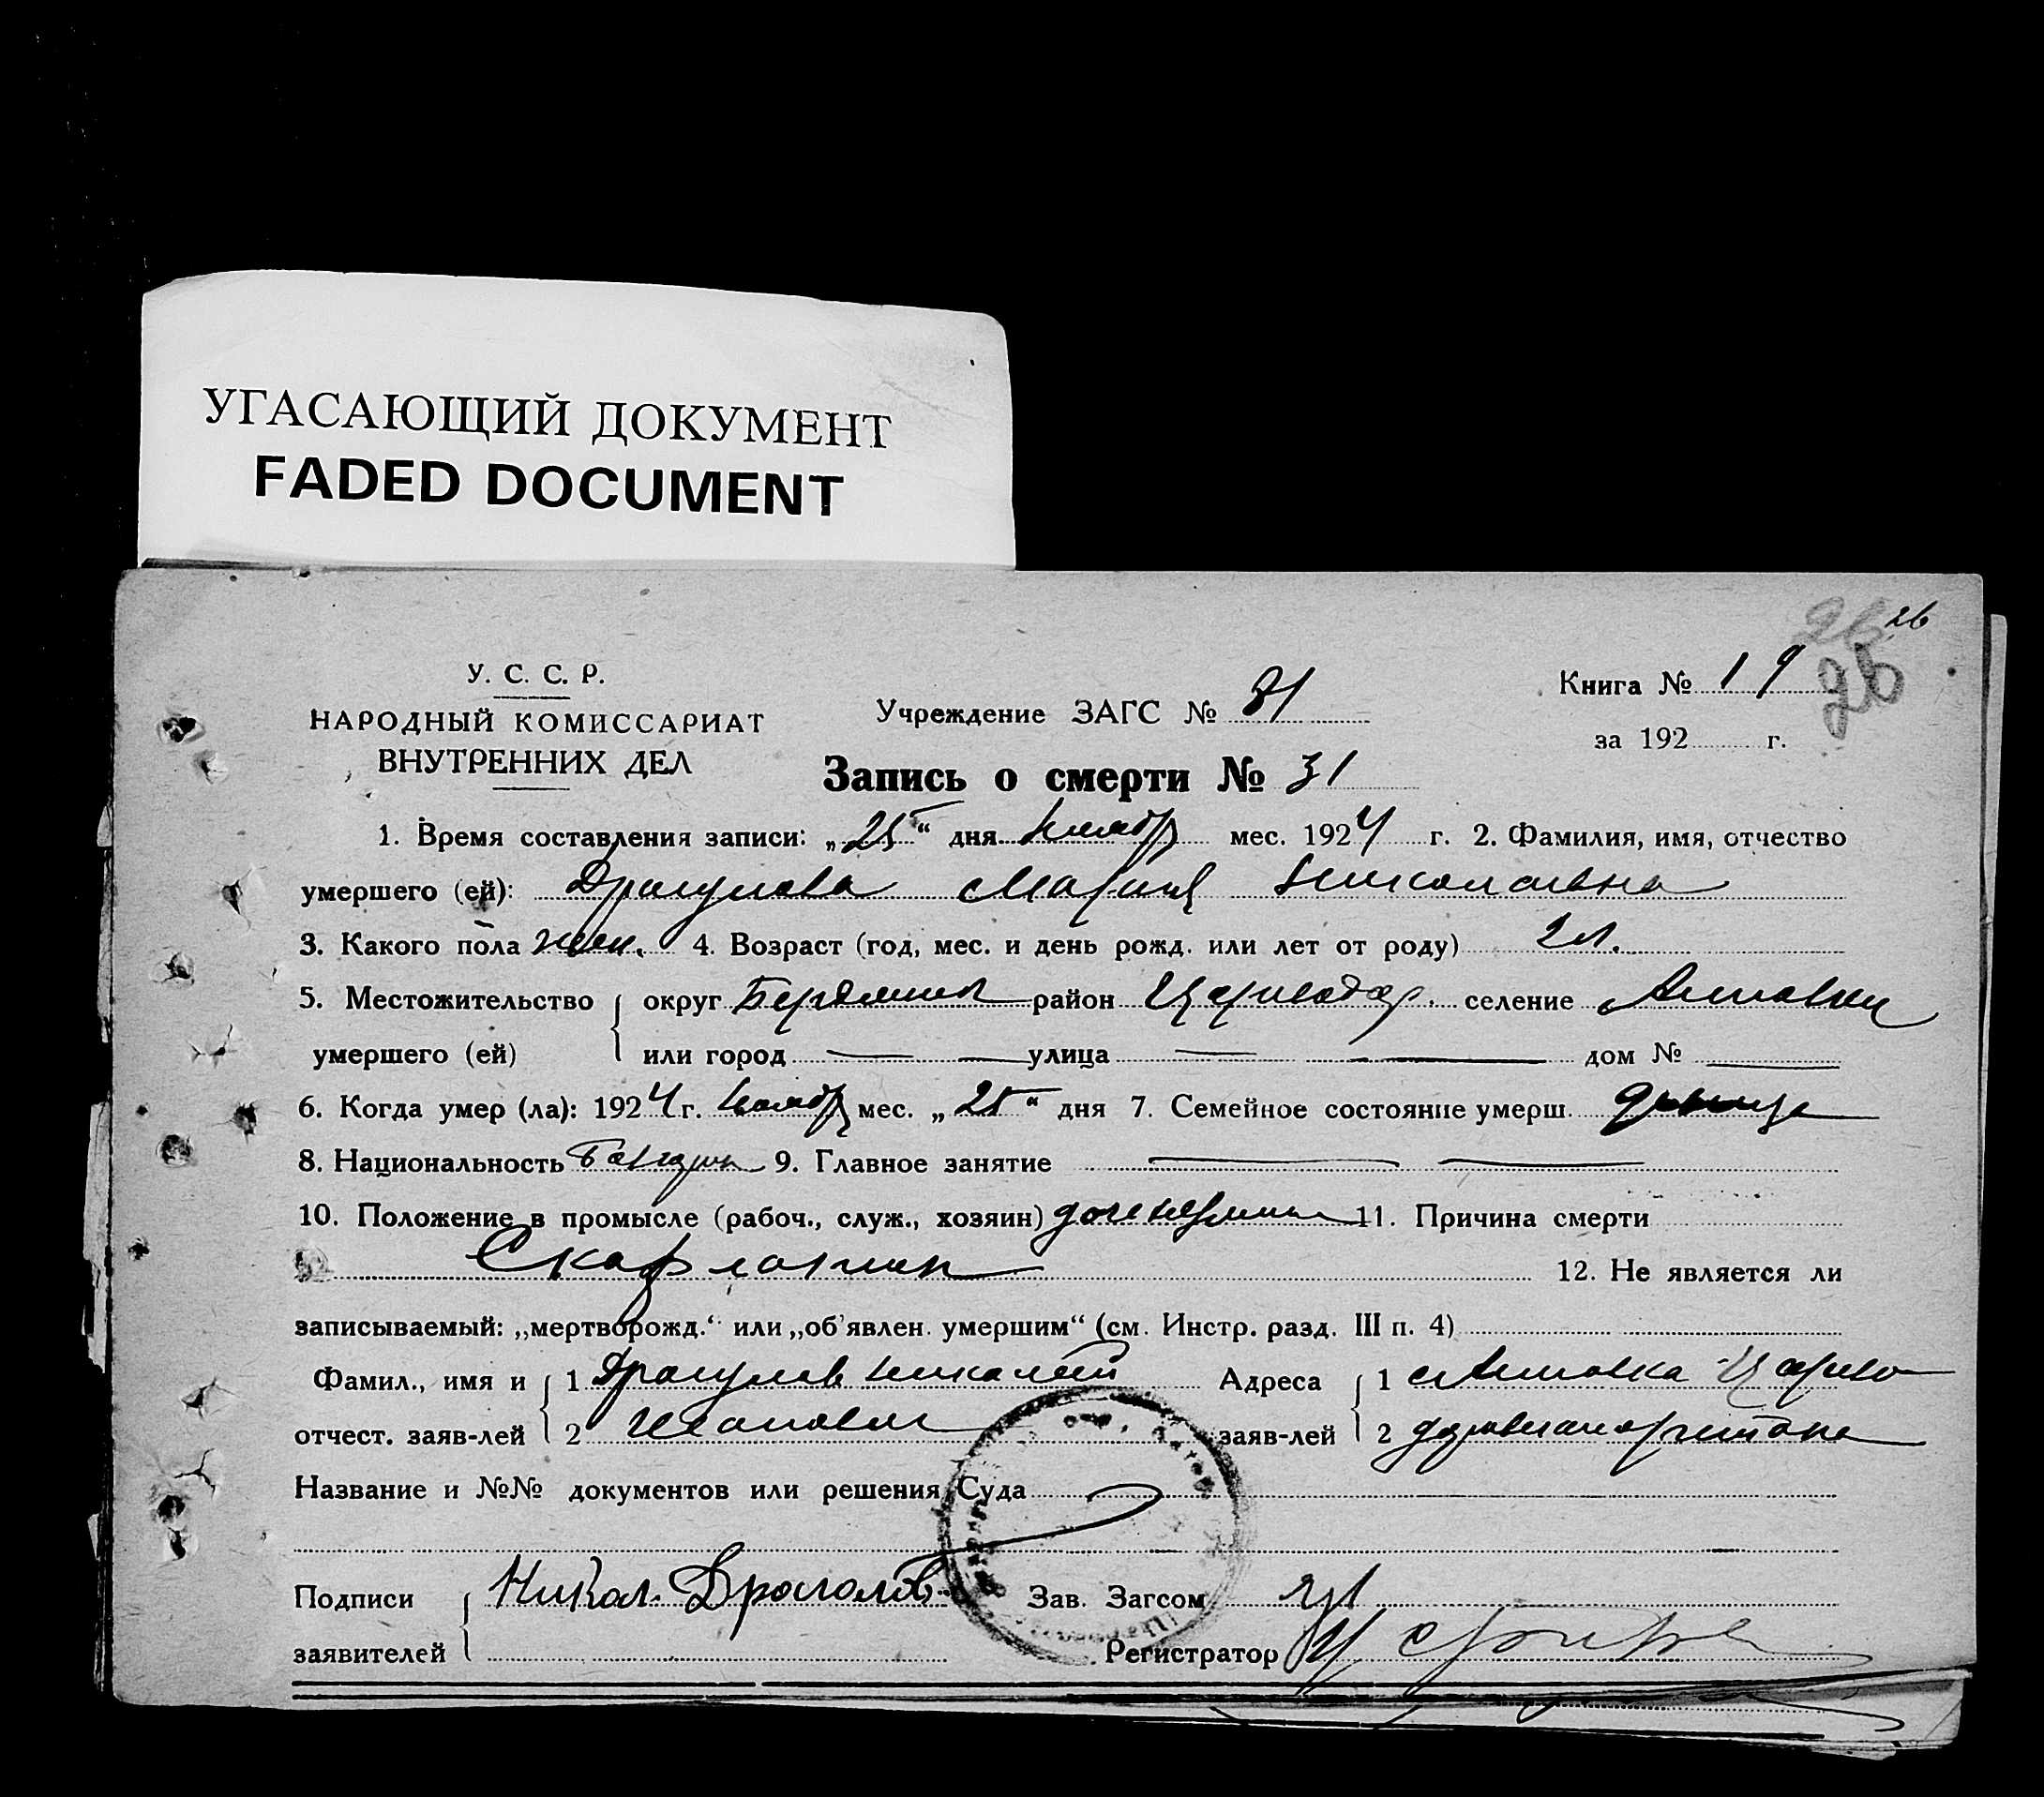 УГАСАЮЩИЙ ДОКУМЕНТ
FADED DOCUMENT
26
26
26
У. С. С. Р.
НАРОДНЫЙ КОМИССАРИАТ
ВНУТРЕННИХ ДЕЛ
Учреждение ЗАГС № 31
Книга № 19
за 192 г.
Запись о смерти № 31
1. Время составления записи: „25“ дня ноябр мес. 1924 г. 2. Фамилия, имя, отчество
умершего (ей): Драгулова Мария Николаевна
3. Какого пола жен. 4. Возраст (год, мес. и день рожд. или лет от роду) 2 л.
5. Местожительство округ район Цареводар. селение Анновка
умершего (ей) или город — — улица — — дом №
6. Когда умер (ла): 1924 г. ноябр мес. „25“ дня 7. Семейное состояние умерш. девица
8. Национальность 9. Главное занятие — —
10. Положение в промысле (рабоч., служ., хозяин) 11. Причина смерти
Скарлатин
12. Не является ли
записываемый: „мертворожд.“ или „об'явлен. умершим“ (см. Инстр. разд. III п. 4)
Фамил., имя и 1 Драгулов Николай Адреса 1 с Анновка Царево
отчест. заяв-лей 2 Иванович заяв-лей 2
Название и №№ документов или решения Суда
Подписи Никол. Драголов Зав. Загсом
заявителей Регистратор